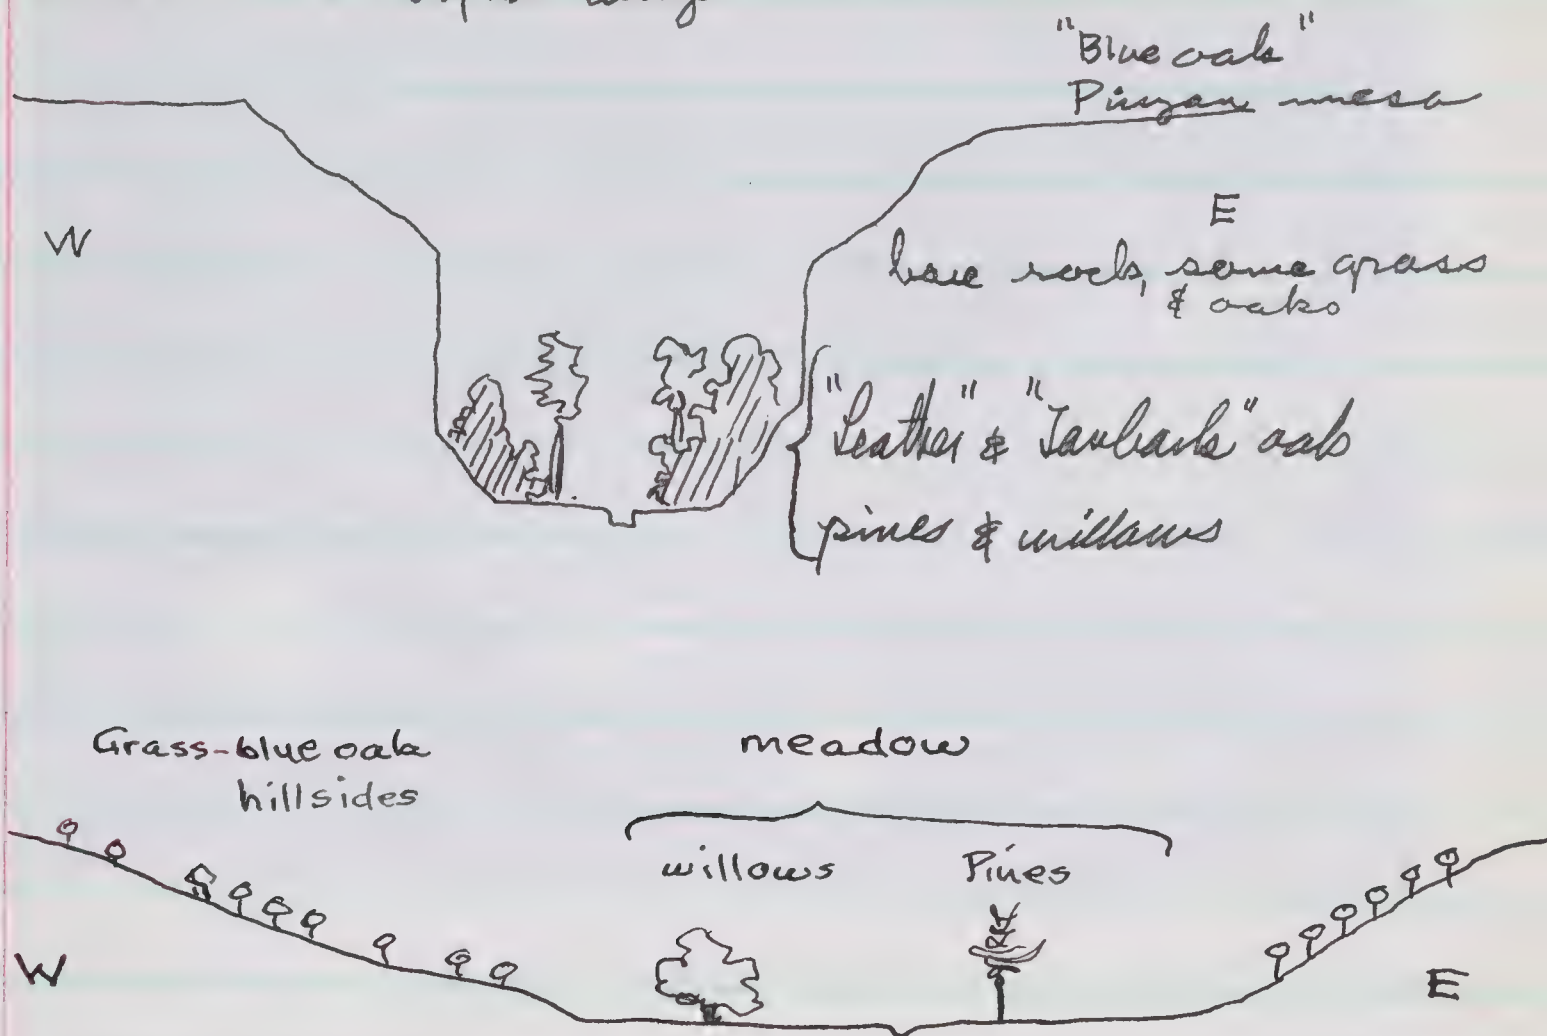 "Blue oak"
Pinyon mesa
W
E
bare rock, some grass
& oaks
"Leather" & "Tanbark" oak
pines & willows
Grass-blue oak
hillsides
meadow
willows
Pines
W
E